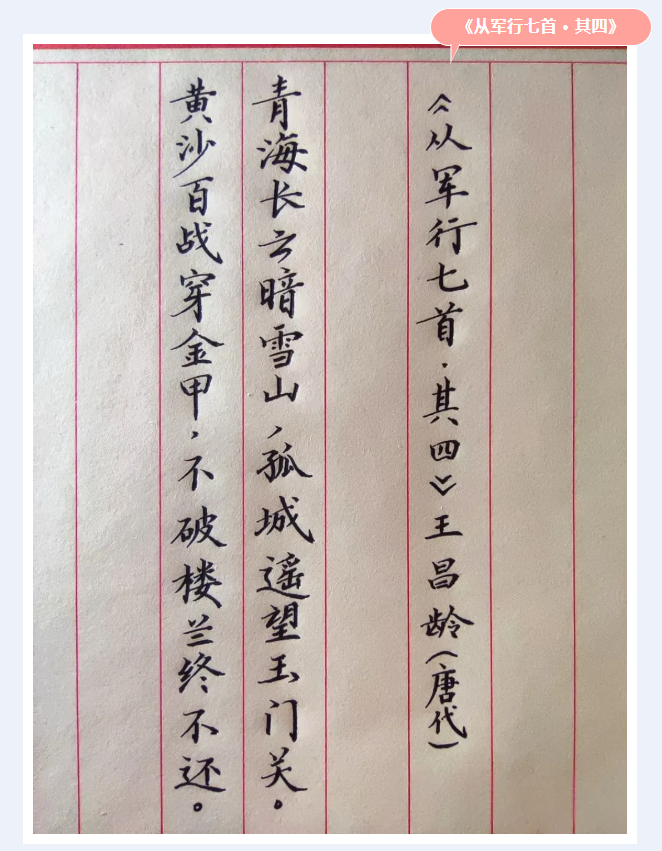 《从军行七首·其四》
《从军行七首·其四》王昌龄（唐代）
青海长云暗雪山，孤城遥望玉门关。
黄沙百战穿金甲，不破楼兰终不还。